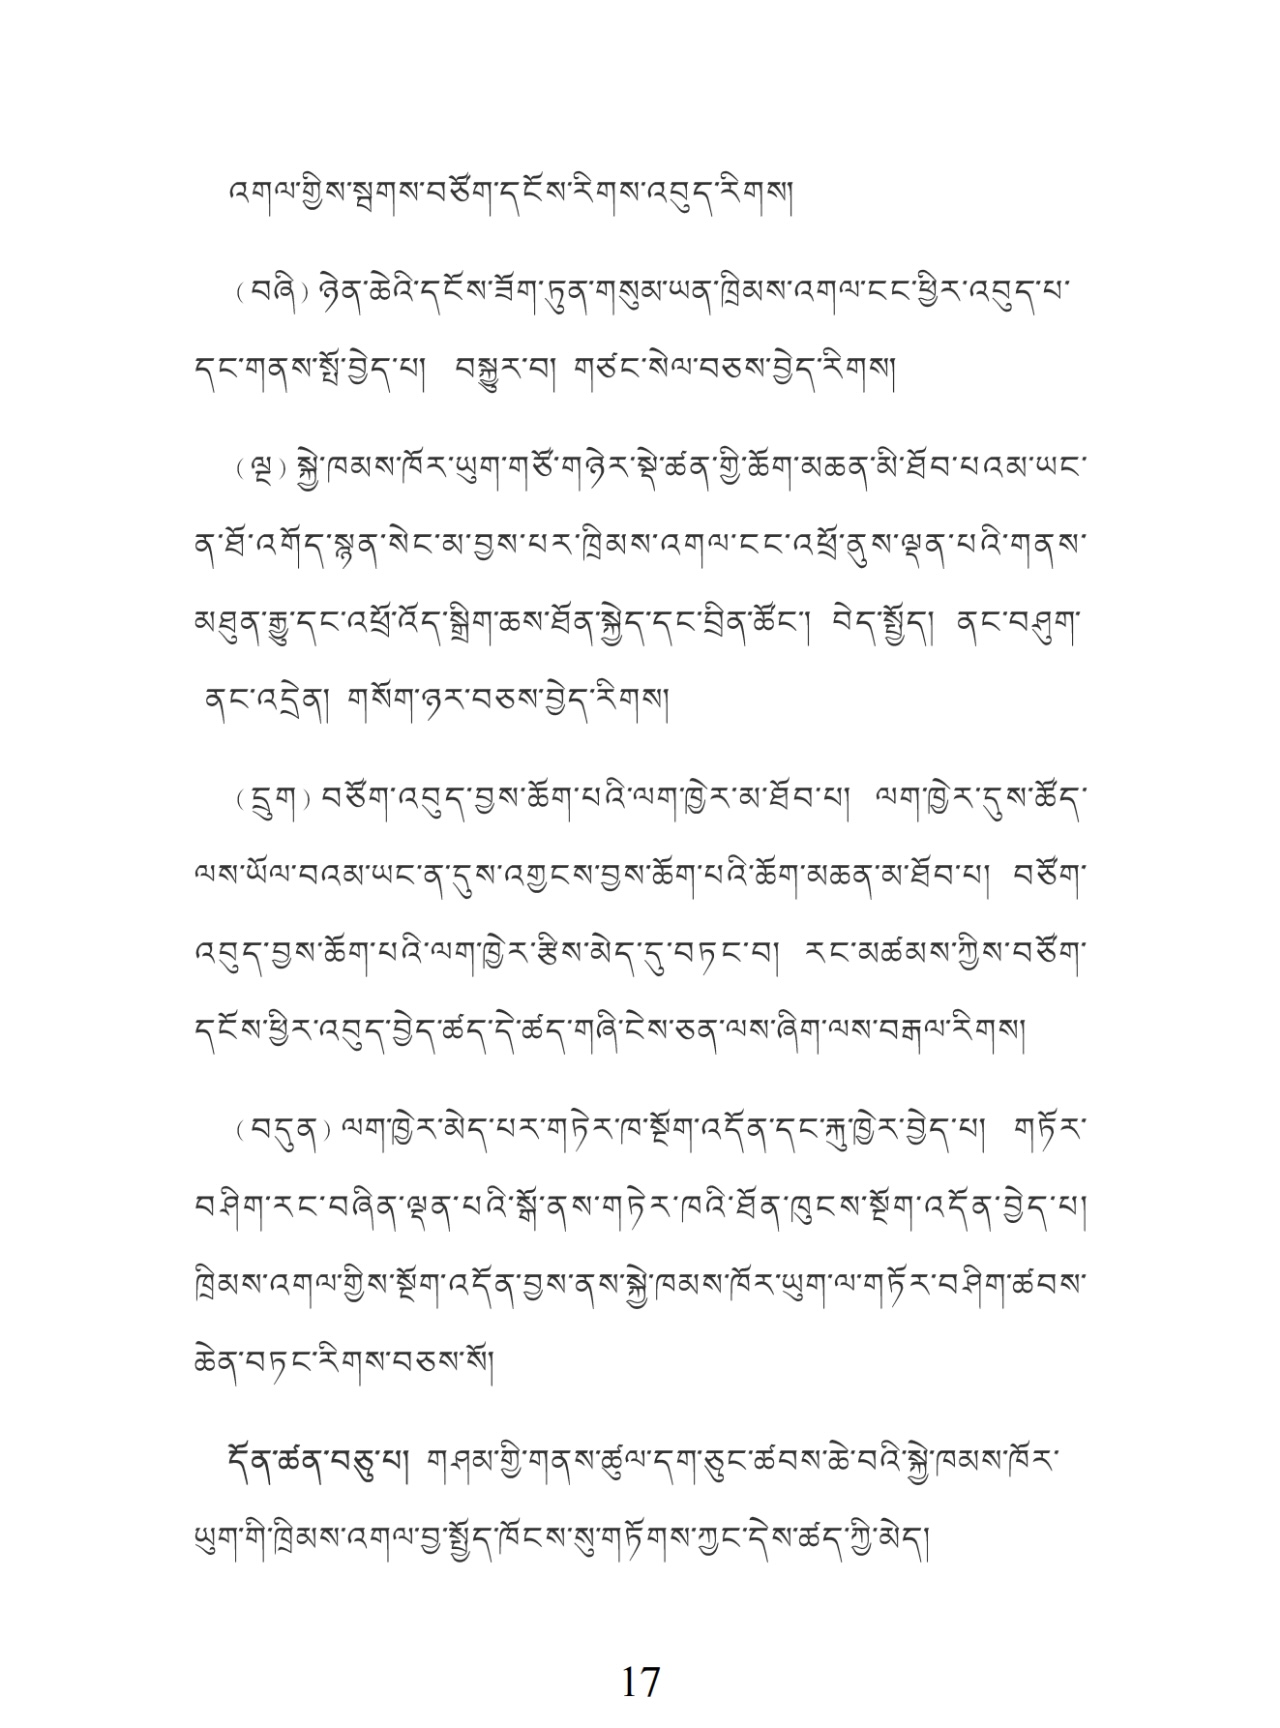 འགལ་གྱིས་སྦགས་བཙོག་དངོས་རིགས་འབུད་རིགས།
(བཞི) ཉེན་ཆེའི་དངོས་ཟོག་ཏུན་གསུམ་ཡན་ཁྲིམས་འགལ་ངང་ཕྱིར་འབུད་པ་
དང་གནས་སྤོ་བྱེད་པ། བསྒྱུར་བ། གཙང་སེལ་བཅས་བྱེད་རིགས།
(ལྔ) སྐྱེ་ཁམས་ཁོར་ཡུག་གཙོ་གཉེར་སྡེ་ཚན་གྱི་ཆོག་མཆན་མི་ཐོབ་པའམ་ཡང་
ན་ཐོ་འགོད་སྙན་སེང་མ་བྱས་པར་ཁྲིམས་འགལ་ངང་འཕྲོ་ནུས་ལྡན་པའི་གནས་
མཐུན་རྒྱུ་དང་འཕྲོ་འོད་སྒྲིག་ཆས་ཐོན་སྐྱེད་དང་བྲིན་ཚོང་། བེད་སྤྱོད། ནང་བཤུག་
ནང་འདྲེན། གསོག་ཉར་བཅས་བྱེད་རིགས།
(དྲུག) བཙོག་འབུད་བྱས་ཆོག་པའི་ལག་ཁྱེར་མ་ཐོབ་པ། ལག་ཁྱེར་དུས་ཚོད་
ལས་ཡོལ་བའམ་ཡང་ན་དུས་འགྱངས་བྱས་ཆོག་པའི་ཆོག་མཆན་མ་ཐོབ་པ། བཙོག་
འབུད་བྱས་ཆོག་པའི་ལག་ཁྱེར་རྩིས་མེད་དུ་བཏང་བ། རང་མཚམས་ཀྱིས་བཙོག་
དངོས་ཕྱིར་འབུད་བྱེད་ཚད་དེ་ཚད་གཞི་ངེས་ཅན་ལས་ཞིག་ལས་བརྒལ་རིགས།
(བདུན) ལག་ཁྱེར་མེད་པར་གཏེར་ཁ་སྔོག་འདོན་དང་རྐུ་ཁྱེར་བྱེད་པ། གཏོར་
བཤིག་རང་བཞིན་ལྡན་པའི་སྒོ་ནས་གཏེར་ཁའི་ཐོན་ཁུངས་སྔོག་འདོན་བྱེད་པ།
ཁྲིམས་འགལ་གྱིས་སྔོག་འདོན་བྱས་ནས་སྐྱེ་ཁམས་ཁོར་ཡུག་ལ་གཏོར་བཤིག་ཚབས་
ཆེན་བཏང་རིགས་བཅས་སོ།
དོན་ཚན་བཅུ་པ། གཤམ་གྱི་གནས་ཚུལ་དག་ཅུང་ཚབས་ཆེ་བའི་སྐྱེ་ཁམས་ཁོར་
ཡུག་གི་ཁྲིམས་འགལ་བྱ་སྤྱོད་ཁོངས་སུ་གཏོགས་ཀྱང་དེས་ཚད་ཀྱི་མེད།
17